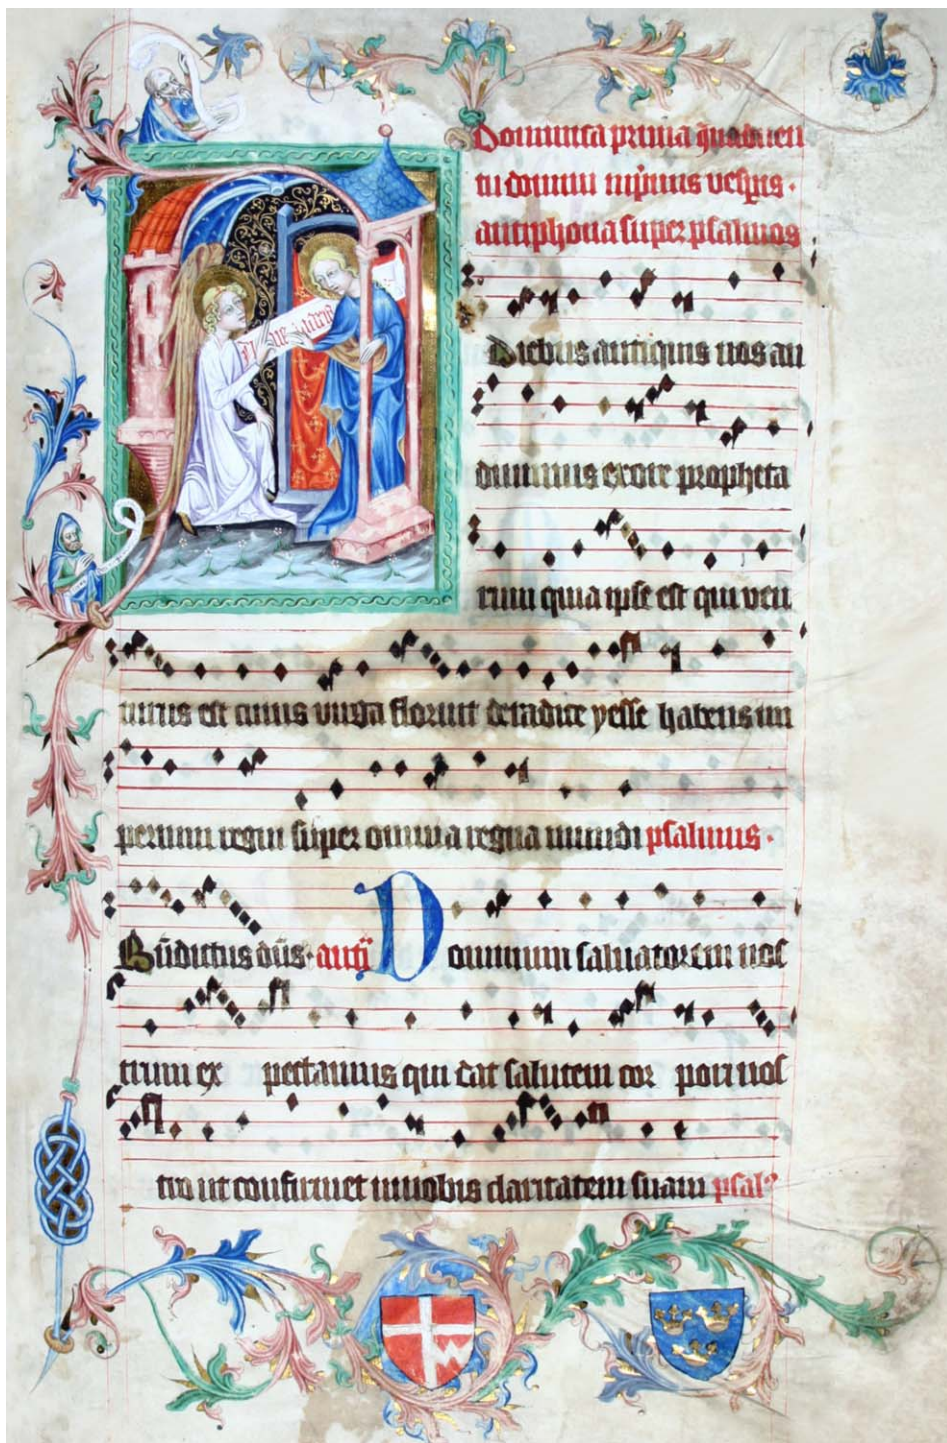 Dominica prima ī aduen
tu domini in p̄mis vesp̄is ·
antiphona super psalmos
Aue maria
Diebus antiquis nos au
diuimus exore propheta
rum quia ipse est qui ven
turus est cuius virga floruit deradice yesse habens im
perium regni super omnia regna mundi psalmus ·
Bn̄dictus dn̄s · antı̄ Dominum saluatorem nos
trum ex pectamus qui dat salutem cor pori nos
tro ut confirmet innobis claritatem suam psalꝰ